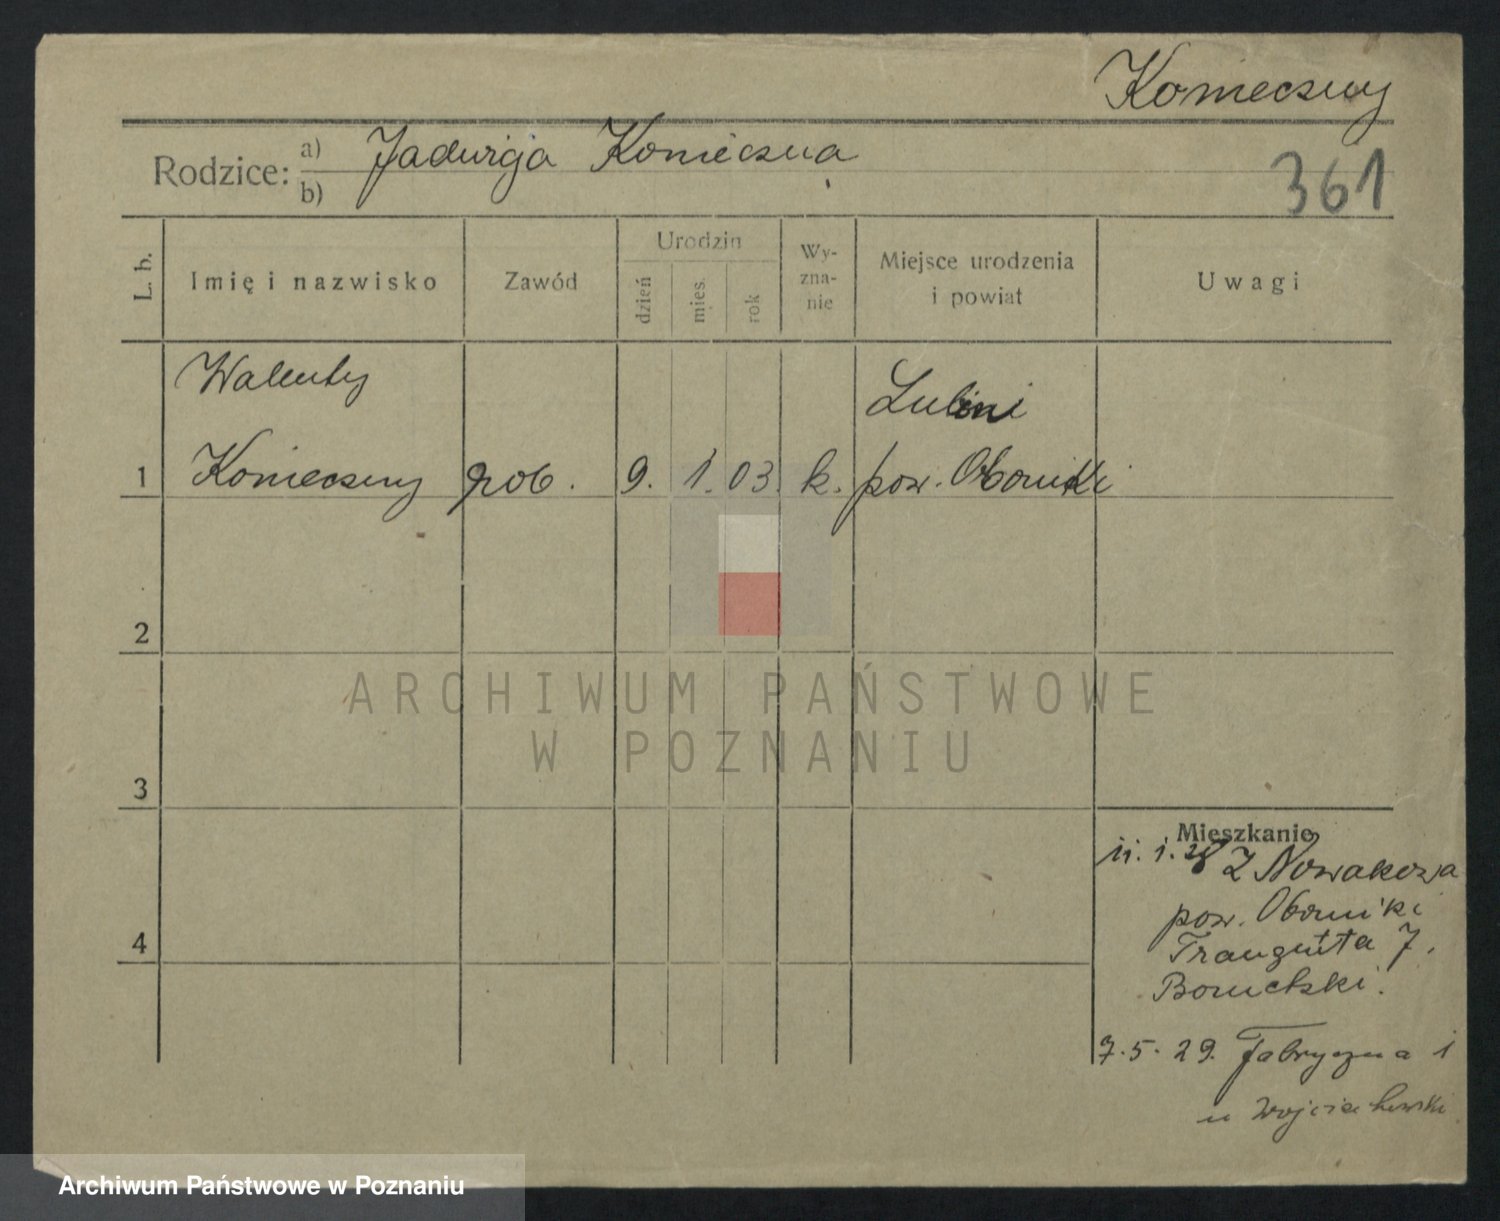 Konieczny
Rodzice: a) Jadwiga Konieczna
b)
361
L. b. Imię i nazwisko Zawód Urodzin dzień mies. rok Wy-zna-nie Miejsce urodzenia i powiat Uwagi
Walenty Lubini
1 Konieczny rob. 9. 1. 03. k. pow. Oborniki
2
3
4
ARCHIWUM PAŃSTWOWE
W POZNANIU
Mieszkanie
11. 1. 28 Z Nowakowa
pow. Oborniki
Traugutta 7.
7. 5. 29. Fabryczna 1
u Wojciechowski
Archiwum Państwowe w Poznaniu